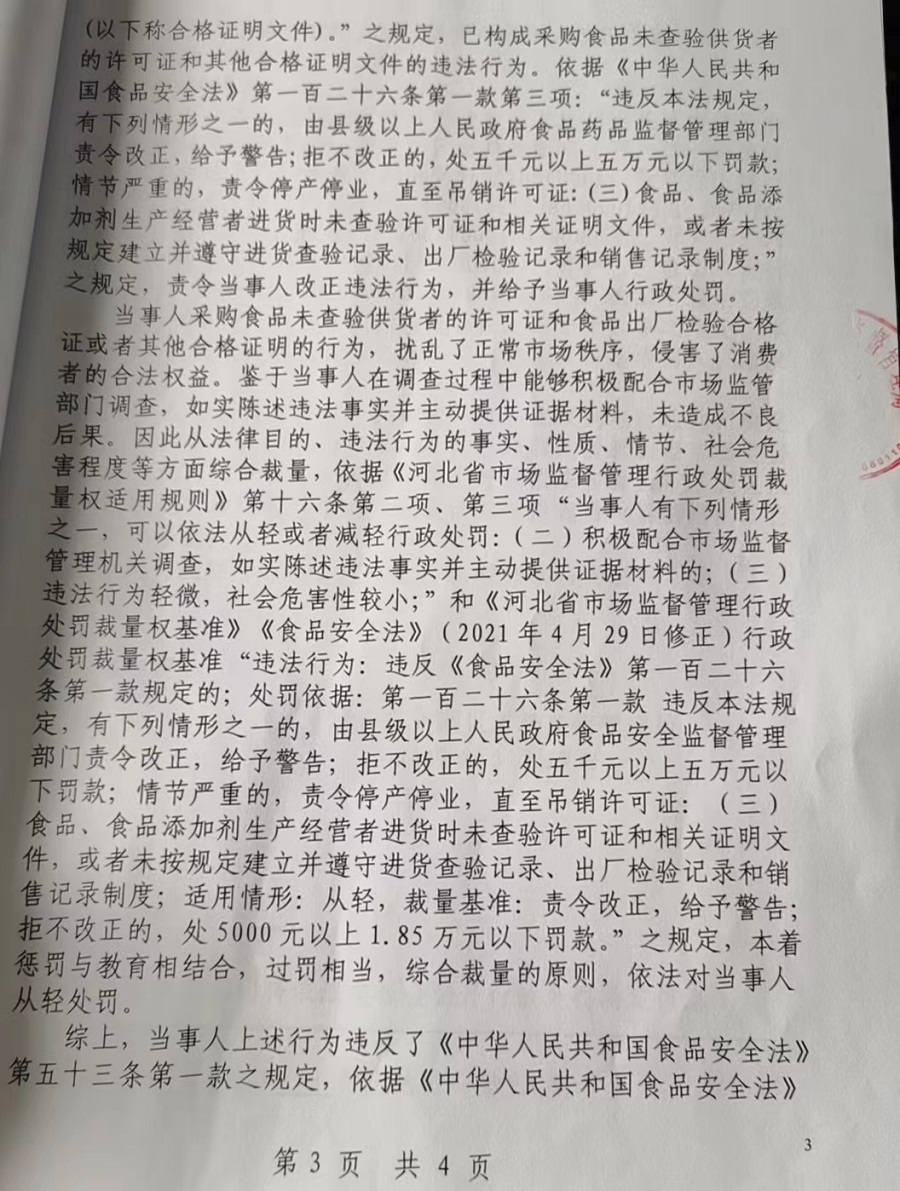 (以下称合格证明文件)。”之规定，已构成采购食品未查验供货者
的许可证和其他合格证明文件的违法行为。依据《中华人民共和
国食品安全法》第一百二十六条第一款第三项：“违反本法规定，
有下列情形之一的，由县级以上人民政府食品药品监督管理部门
责令改正，给予警告；拒不改正的，处五千元以上五万元以下罚款；
情节严重的，责令停产停业，直至吊销许可证：(三)食品、食品添
加剂生产经营者进货时未查验许可证和相关证明文件，或者未按
规定建立并遵守进货查验记录、出厂检验记录和销售记录制度；”
之规定，责令当事人改正违法行为，并给予当事人行政处罚。
当事人采购食品未查验供货者的许可证和食品出厂检验合格
证或者其他合格证明的行为，扰乱了正常市场秩序，侵害了消费
者的合法权益。鉴于当事人在调查过程中能够积极配合市场监管
部门调查，如实陈述违法事实并主动提供证据材料，未造成不良
后果。因此从法律目的、违法行为的事实、性质、情节、社会危
害程度等方面综合裁量，依据《河北省市场监督管理行政处罚裁
量权适用规则》第十六条第二项、第三项“当事人有下列情形
之一，可以依法从轻或者减轻行政处罚：(二)积极配合市场监督
管理机关调查，如实陈述违法事实并主动提供证据材料的；(三)
违法行为轻微，社会危害性较小；”和《河北省市场监督管理行政
处罚裁量权基准》《食品安全法》(2021年4月29日修正)行政
处罚裁量权基准“违法行为：违反《食品安全法》第一百二十六
条第一款规定的；处罚依据：第一百二十六条第一款 违反本法规
定，有下列情形之一的，由县级以上人民政府食品安全监督管理
部门责令改正，给予警告；拒不改正的，处五千元以上五万元以
下罚款；情节严重的，责令停产停业，直至吊销许可证：(三)
食品、食品添加剂生产经营者进货时未查验许可证和相关证明文
件，或者未按规定建立并遵守进货查验记录、出厂检验记录和销
售记录制度；适用情形：从轻，裁量基准：责令改正，给予警告；
拒不改正的，处5000元以上1.85万元以下罚款。”之规定，本着
惩罚与教育相结合，过罚相当，综合裁量的原则，依法对当事人
从轻处罚。
综上，当事人上述行为违反了《中华人民共和国食品安全法》
第五十三条第一款之规定，依据《中华人民共和国食品安全法》
3
第3页 共4页